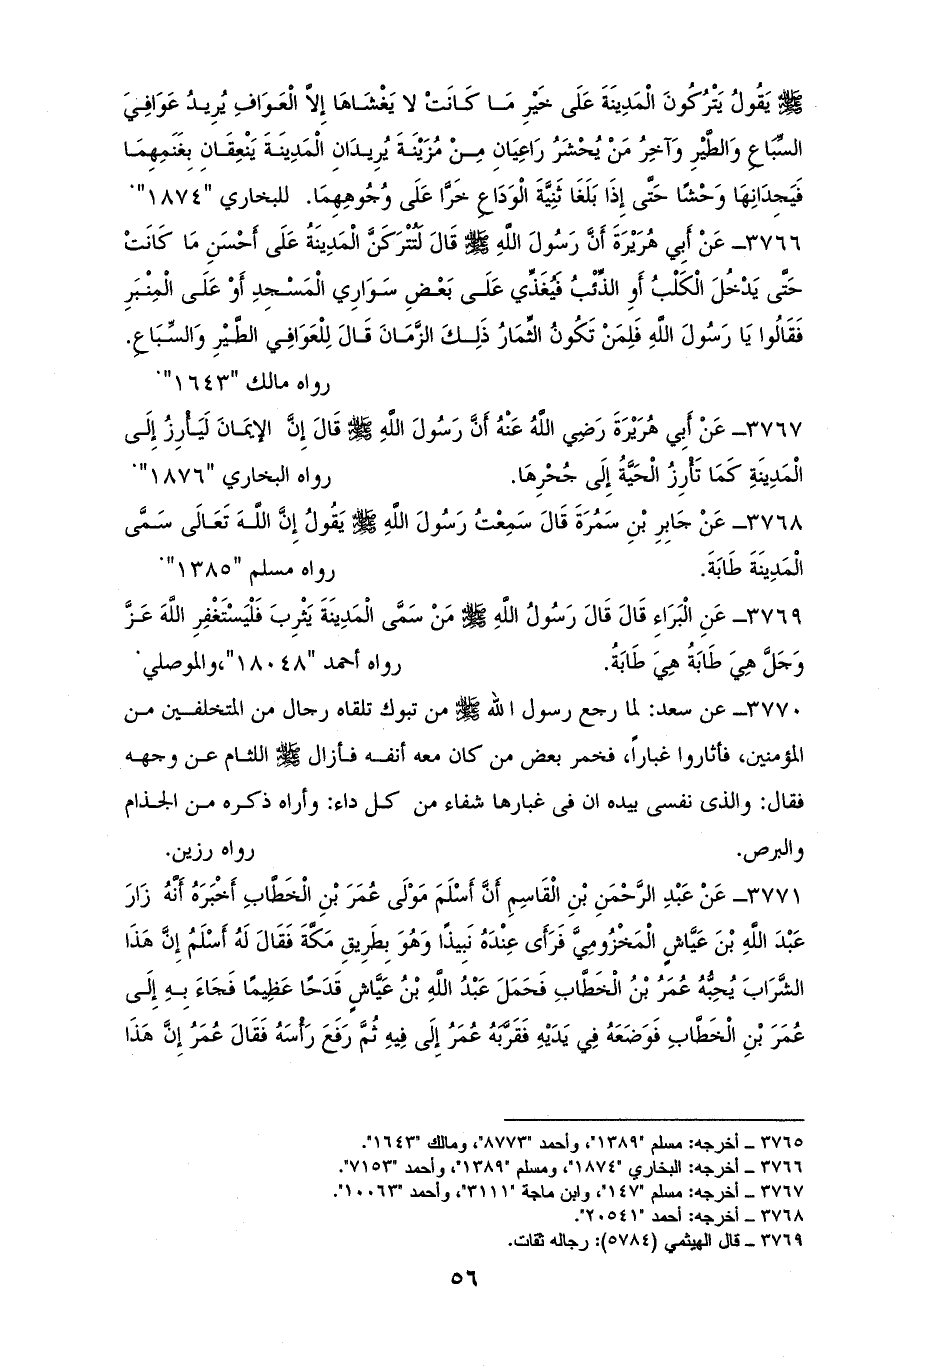 ﷺ يَقُولُ يَتْرُكُونَ الْمَدِينَةَ عَلَى خَيْرِ مَا كَانَتْ لا يَغْشَاهَا إِلاَّ الْعَوَافِ يُرِيدُ عَوَافِيَ
السِّبَاعِ وَالطَّيْرِ وَآخِرُ مَنْ يُحْشَرُ رَاعِيَانِ مِنْ مُزَيْنَةَ يُرِيدَانِ الْمَدِينَةَ يَنْعِقَانِ بِغَنَمِهِمَا
فَيَجِدَانِهَا وَحْشًا حَتَّى إِذَا بَلَغَا ثَنِيَّةَ الْوَدَاعِ خَرَّا عَلَى وُجُوهِهِمَا. للبخاري "١٨٧٤".
٣٧٦٦ـ عَنْ أَبِي هُرَيْرَةَ أَنَّ رَسُولَ اللَّهِ ﷺ قَالَ لَتُتْرَكَنَّ الْمَدِينَةُ عَلَى أَحْسَنِ مَا كَانَتْ
حَتَّى يَدْخُلَ الْكَلْبُ أَوِ الذِّئْبُ فَيُغَذِّي عَلَى بَعْضِ سَوَارِي الْمَسْجِدِ أَوْ عَلَى الْمِنْبَرِ
فَقَالُوا يَا رَسُولَ اللَّهِ فَلِمَنْ تَكُونُ الثِّمَارُ ذَلِكَ الزَّمَانَ قَالَ لِلْعَوَافِي الطَّيْرِ وَالسِّبَاعِ.
رواه مالك "١٦٤٣".
٣٧٦٧ـ عَنْ أَبِي هُرَيْرَةَ رَضِي اللَّهُ عَنْهُ أَنَّ رَسُولَ اللَّهِ ﷺ قَالَ إِنَّ الإِيمَانَ لَيَأْرِزُ إِلَى
الْمَدِينَةِ كَمَا تَأْرِزُ الْحَيَّةُ إِلَى جُحْرِهَا. رواه البخاري "١٨٧٦".
٣٧٦٨ـ عَنْ جَابِرِ بْنِ سَمُرَةَ قَالَ سَمِعْتُ رَسُولَ اللَّهِ ﷺ يَقُولُ إِنَّ اللَّهَ تَعَالَى سَمَّى
الْمَدِينَةَ طَابَةَ. رواه مسلم "١٣٨٥".
٣٧٦٩ـ عَنِ الْبَرَاءِ قَالَ قَالَ رَسُولُ اللَّهِ ﷺ مَنْ سَمَّى الْمَدِينَةَ يَثْرِبَ فَلْيَسْتَغْفِرِ اللَّهَ عَزَّ
وَجَلَّ هِيَ طَابَةُ هِيَ طَابَةُ. رواه أحمد "١٨٠٤٨"،والموصلي.
٣٧٧٠ـ عن سعد: لما رجع رسول الله ﷺ من تبوك تلقاه رجال من المتخلفين من
المؤمنين، فأثاروا غباراً، فخمر بعض من كان معه أنفه فأزال ﷺ اللثام عن وجهه
فقال: والذى نفسى بيده ان فى غبارها شفاء من كل داء: وأراه ذكره من الجذام
والبرص. رواه رزين.
٣٧٧١ـ عَنْ عَبْدِ الرَّحْمَنِ بْنِ الْقَاسِمِ أَنَّ أَسْلَمَ مَوْلَى عُمَرَ بْنِ الْخَطَّابِ أَخْبَرَهُ أَنَّهُ زَارَ
عَبْدَ اللَّهِ بْنَ عَيَّاشٍ الْمَخْزُومِيَّ فَرَأَى عِنْدَهُ نَبِيذًا وَهُوَ بِطَرِيقِ مَكَّةَ فَقَالَ لَهُ أَسْلَمُ إِنَّ هَذَا
الشَّرَابَ يُحِبُّهُ عُمَرُ بْنُ الْخَطَّابِ فَحَمَلَ عَبْدُ اللَّهِ بْنُ عَيَّاشٍ قَدَحًا عَظِيمًا فَجَاءَ بِهِ إِلَى
عُمَرَ بْنِ الْخَطَّابِ فَوَضَعَهُ فِي يَدَيْهِ فَقَرَّبَهُ عُمَرُ إِلَى فِيهِ ثُمَّ رَفَعَ رَأْسَهُ فَقَالَ عُمَرُ إِنَّ هَذَا
٣٧٦٥ ـ أخرجه: مسلم "١٣٨٩"، وأحمد "٨٧٧٣"، ومالك "١٦٤٣".
٣٧٦٦ ـ أخرجه: البخاري "١٨٧٤"، ومسلم "١٣٨٩"، وأحمد "٧١٥٣".
٣٧٦٧ ـ أخرجه: مسلم "١٤٧"، وابن ماجة "٣١١١"، وأحمد "١٠٠٦٣".
٣٧٦٨ ـ أخرجه: أحمد "٢٠٥٤١".
٣٧٦٩ ـ قال الهيثمي (٥٧٨٤): رجاله ثقات.
٥٦